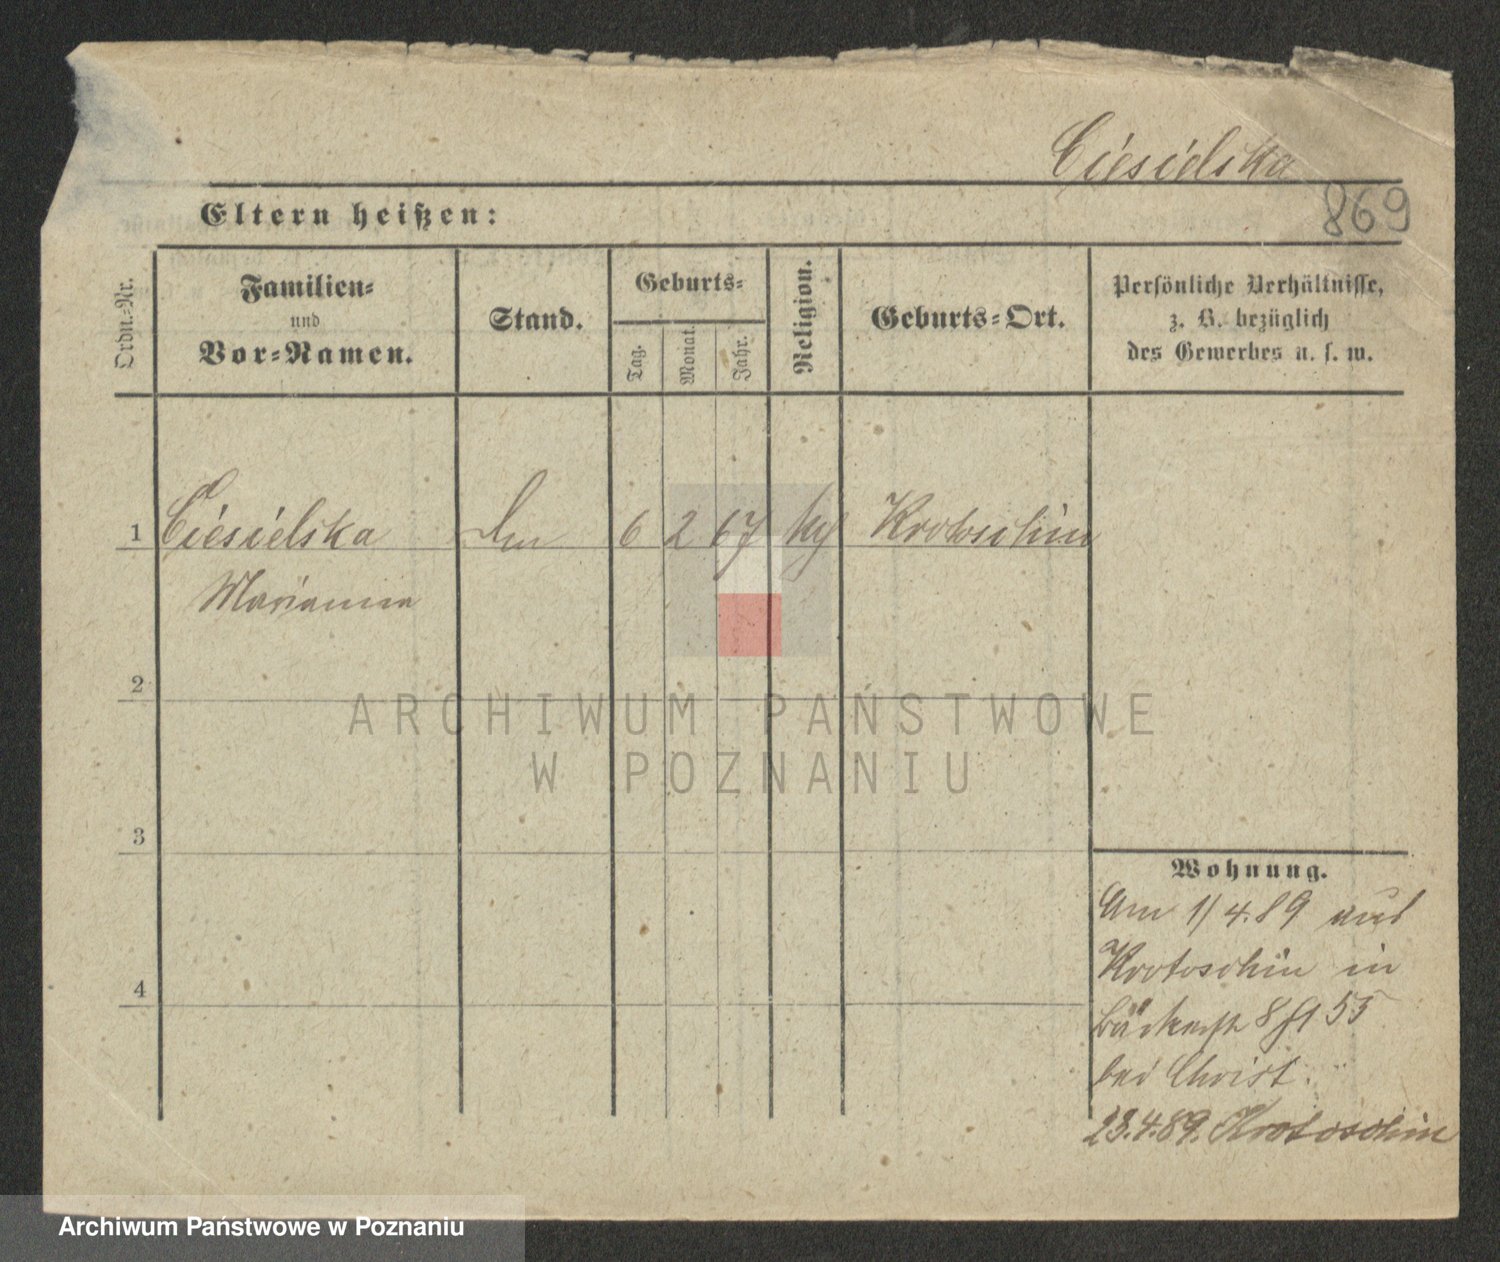 Ciesielska
869
Eltern heißen:
Ordn.-Nr.
Familien-
und
Vor-Namen.
Stand.
Geburts-
Tag.
Monat.
Jahr.
Religion.
Geburts-Ort.
Persönliche Verhältnisse,
z. B. bezüglich
des Gewerbes u. s. w.
1 Ciesielska 6 2 67 Krotoschin
Marianna
2
3
4
ARCHIWUM PAŃSTWOWE
W POZNANIU
Wohnung.
Am 1/4.89 aus
Krotoschin in
55
bei Christ.
23.4.89. Krotoschin
Archiwum Państwowe w Poznaniu